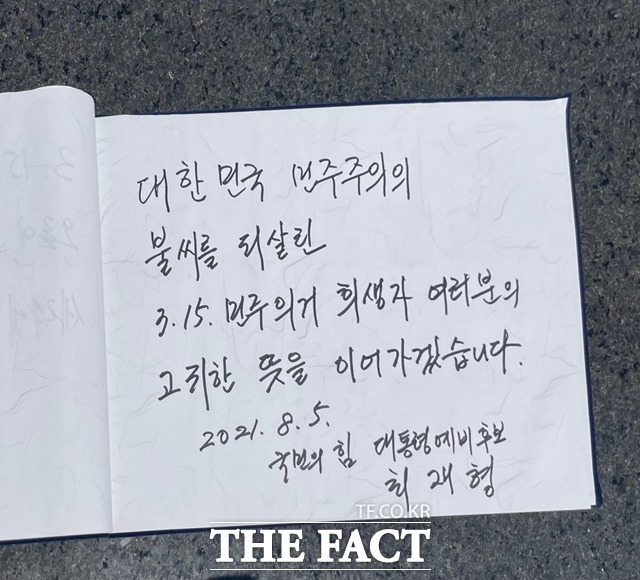 대한민국 민주주의의
불씨를 되살린
3.15. 민주의거 희생자 여러분의
고귀한 뜻을 이어가겠습니다.
2021. 8. 5.
국민의 힘 대통령예비후보
최재형
TF.CO.KR
THE FACT